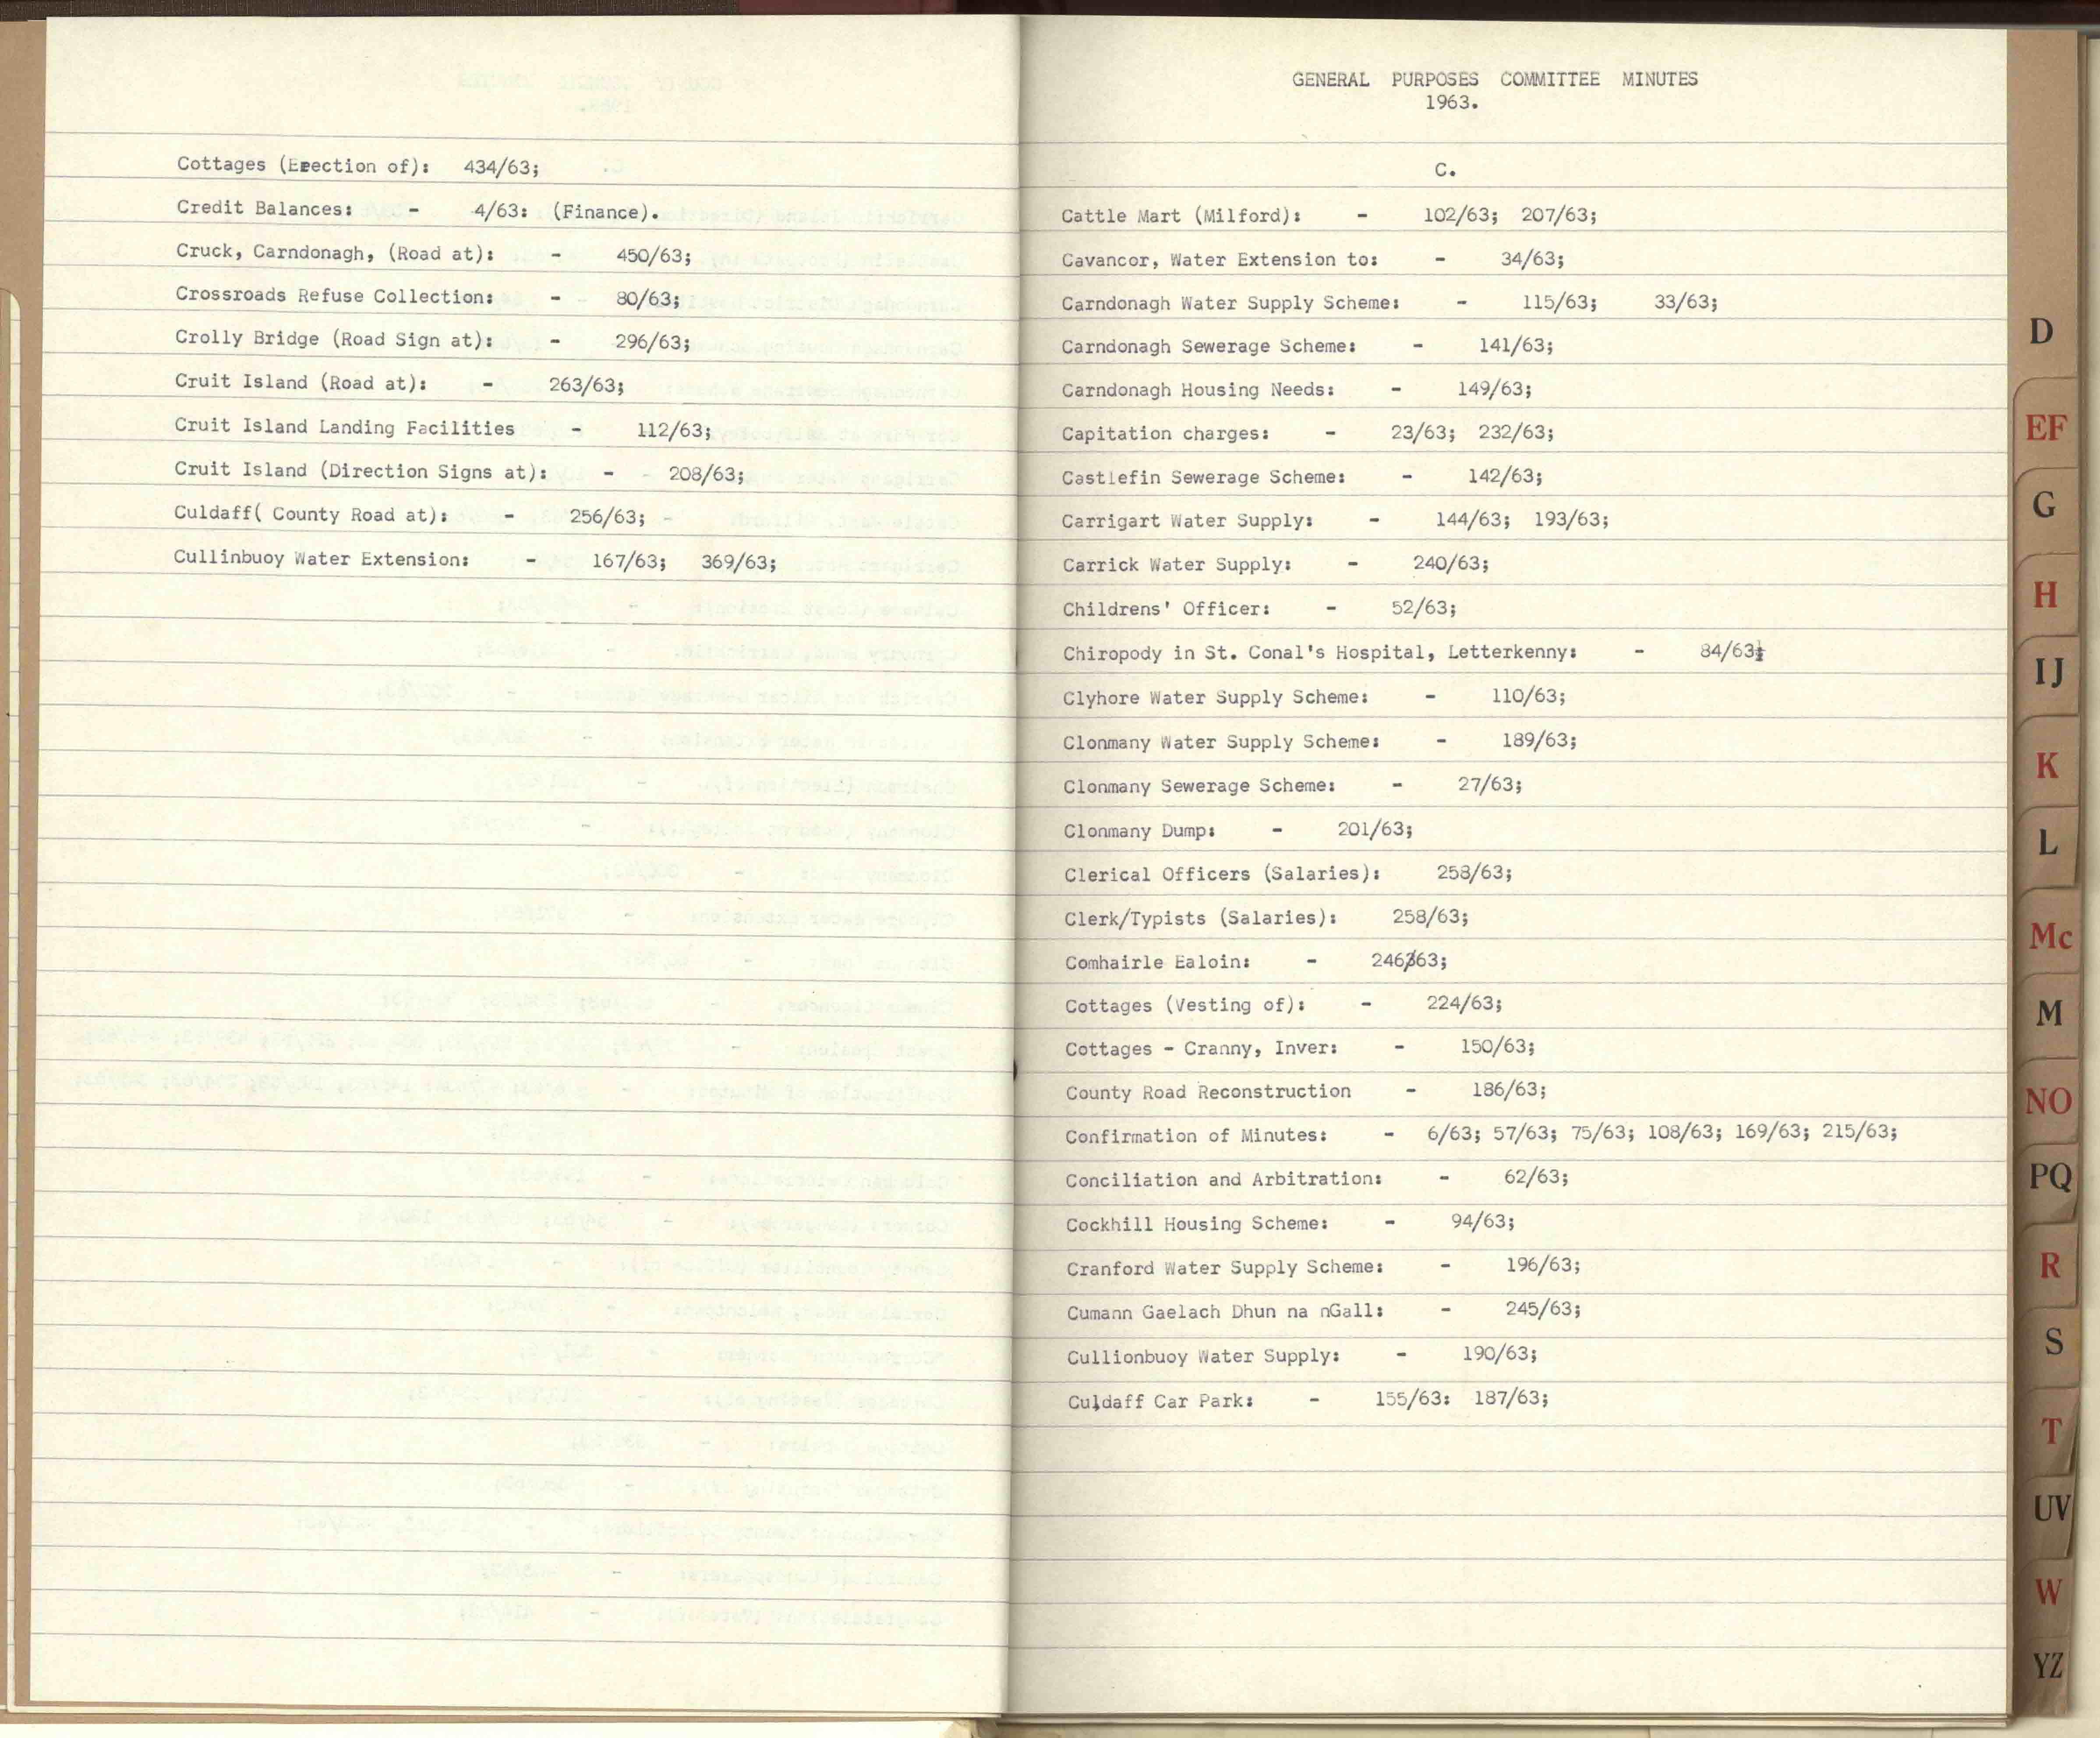 Cottages (Erection of): 434/63;
Credit Balances: - 4/63: (Finance).
Cruck, Carndonagh, (Road at): - 450/63;
Crossroads Refuse Collection: - 80/63;
Crolly Bridge (Road Sign at): - 296/63;
Cruit Island (Road at): - 263/63;
Cruit Island Landing Facilities - 112/63;
Cruit Island (Direction Signs at): - 208/63;
Culdaff( County Road at): - 256/63;
Cullinbuoy Water Extension: - 167/63; 369/63;
GENERAL PURPOSES COMMITTEE MINUTES
1963.
C.
Cattle Mart (Milford): - 102/63; 207/63;
Cavancor, Water Extension to: - 34/63;
Carndonagh Water Supply Scheme: - 115/63; 33/63;
Carndonagh Sewerage Scheme: - 141/63;
Carndonagh Housing Needs: - 149/63;
Capitation charges: - 23/63; 232/63;
Castlefin Sewerage Scheme: - 142/63;
Carrigart Water Supply: - 144/63; 193/63;
Carrick Water Supply: - 240/63;
Childrens' Officer: - 52/63;
Chiropody in St. Conal's Hospital, Letterkenny: - 84/63;
Clyhore Water Supply Scheme: - 110/63;
Clonmany Water Supply Scheme: - 189/63;
Clonmany Sewerage Scheme: - 27/63;
Clonmany Dump: - 201/63;
Clerical Officers (Salaries): 258/63;
Clerk/Typists (Salaries): 258/63;
Comhairle Ealoin: - 246/63;
Cottages (Vesting of): - 224/63;
Cottages - Cranny, Inver: - 150/63;
County Road Reconstruction - 186/63;
Confirmation of Minutes: - 6/63; 57/63; 75/63; 108/63; 169/63; 215/63;
Conciliation and Arbitration: - 62/63;
Cockhill Housing Scheme: - 94/63;
Cranford Water Supply Scheme: - 196/63;
Cumann Gaelach Dhun na nGall: - 245/63;
Cullionbuoy Water Supply: - 190/63;
Culdaff Car Park: - 155/63: 187/63;
D
EF
G
H
IJ
K
L
Mc
M
NO
PQ
R
S
T
UV
W
YZ